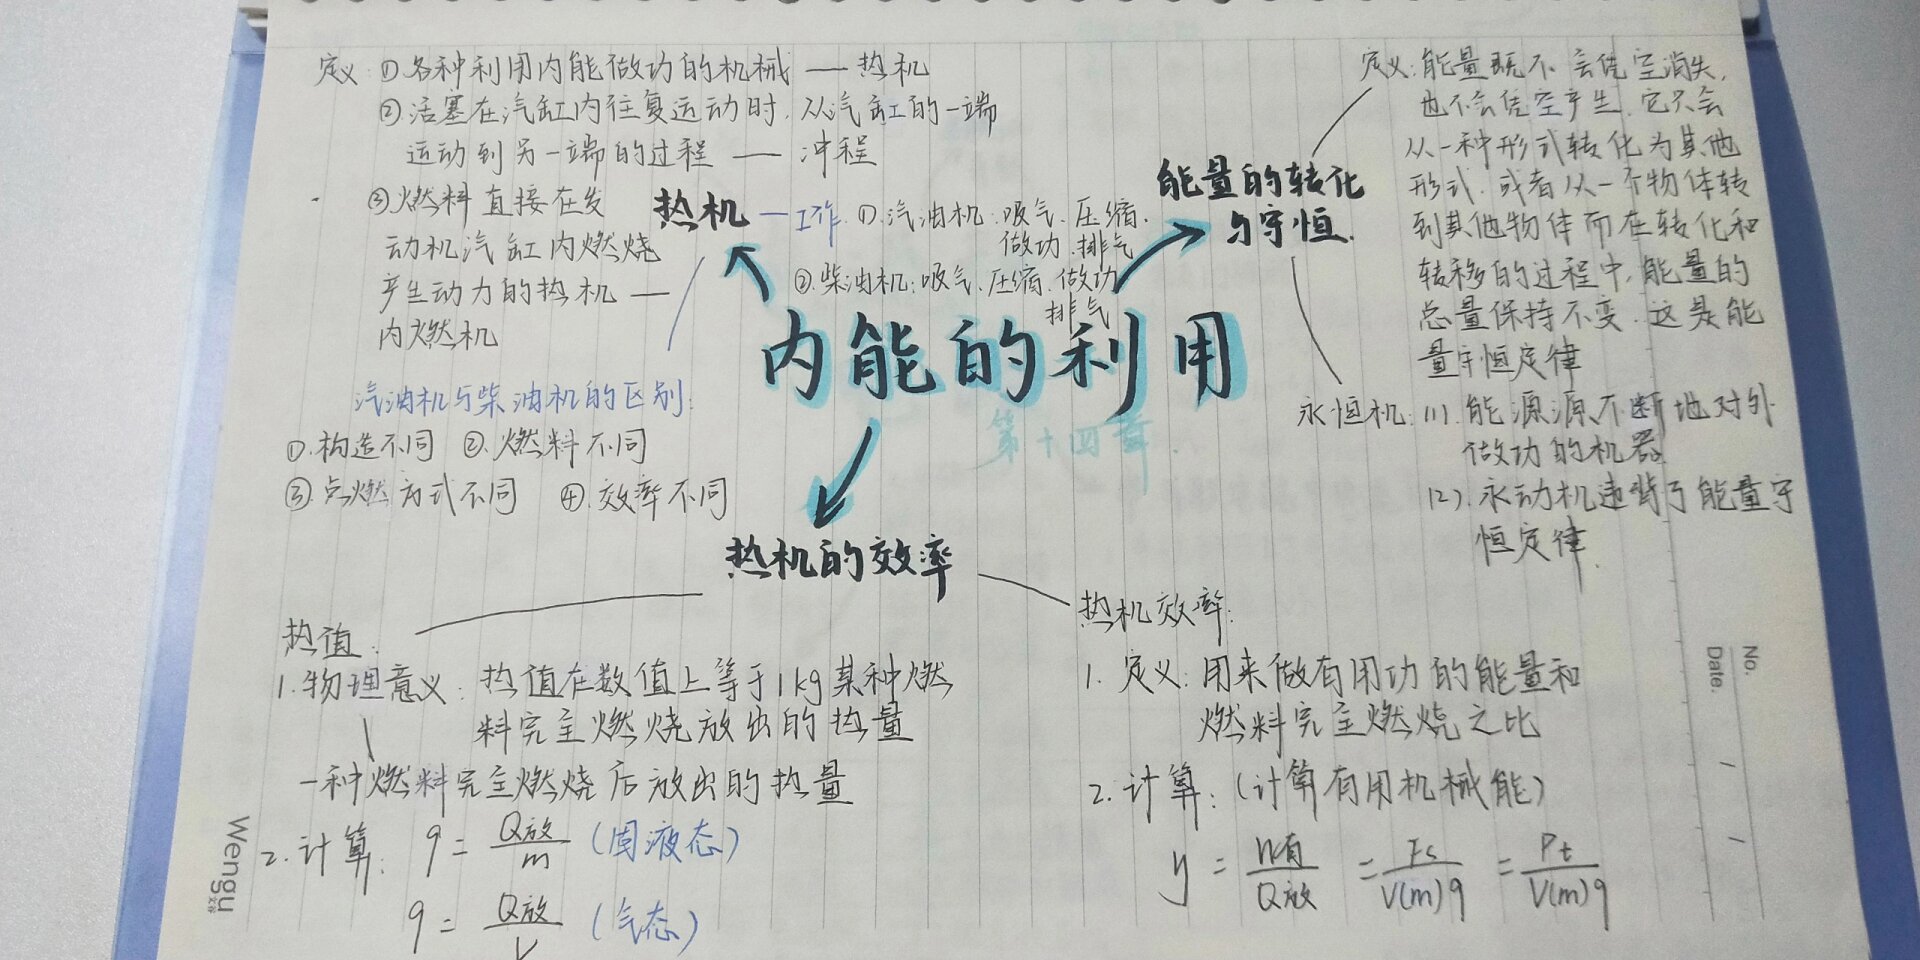 定义:①各种利用内能做功的机械——热机
②活塞在汽缸内往复运动时,从汽缸的一端
运动到另一端的过程——冲程
③燃料直接在发
动机汽缸内燃烧
产生动力的热机——
内燃机
热机—工作.①.汽油机:吸气、压缩、
做功、排气
②.柴油机:吸气、压缩、做功
排气
汽油机与柴油机的区别:
①.构造不同 ②.燃料不同
③点燃方式不同 ④.效率不同
能量的转化
与守恒.
定义:能量既不会凭空消失,
也不会凭空产生,它只会
从一种形式转化为其他
形式,或者从一个物体转
到其他物体而在转化和
转移的过程中,能量的
总量保持不变.这是能
量守恒定律
永恒机:(1).能源源不断地对外
做功的机器
(2).永动机违背了能量守
恒定律.
内能的利用
第十四章
热机的效率
热值:
1.物理意义:热值在数值上等于1kg某种燃
料完全燃烧放出的热量
一种燃料完全燃烧后放出的热量
2.计算: q=Q放/m (固液态)
q=Q放/V (气态)
热机效率:
1.定义:用来做有用功的能量和
燃料完全燃烧之比
2.计算:(计算有用机械能)
η=W有/Q放=Fs/V(m)q=Pt/V(m)q
No.
Date.
Wengu